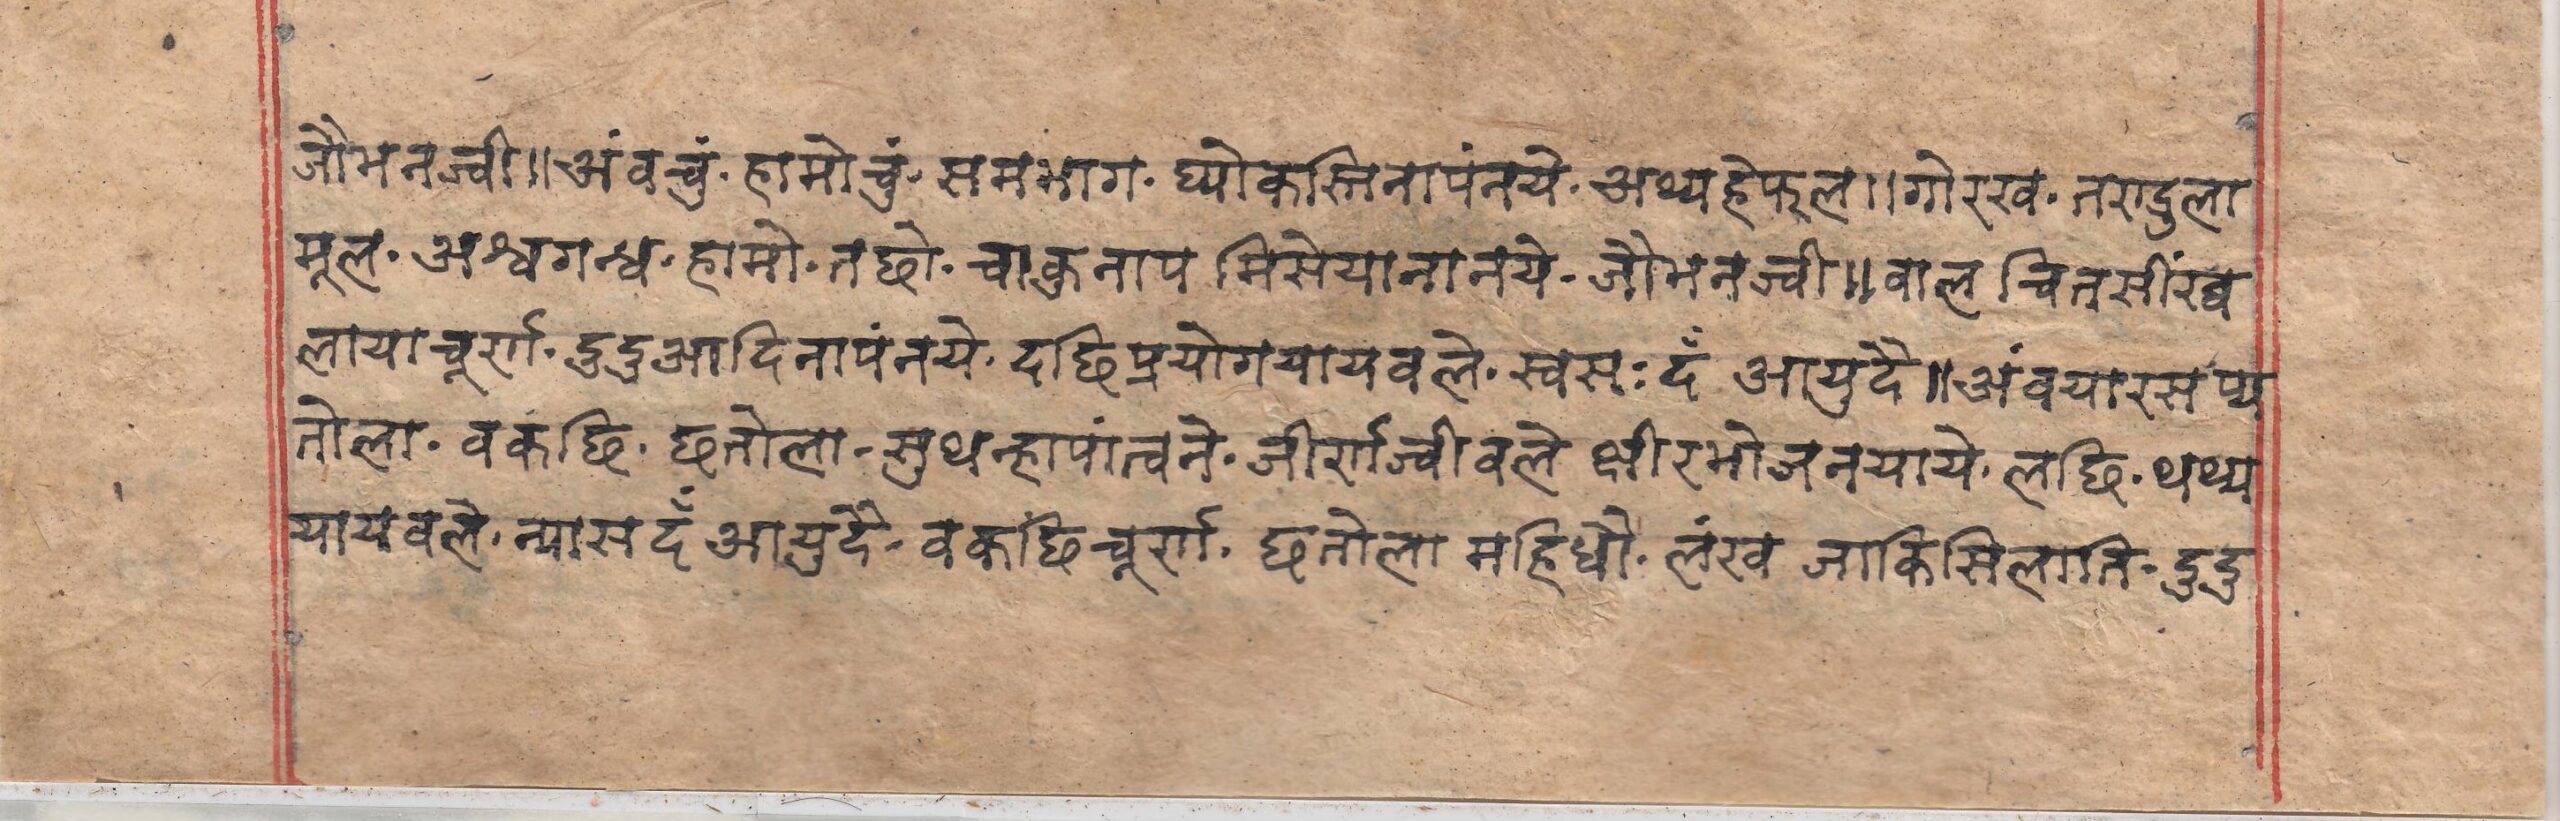 जौभनज्वी॥अंवचुं॰हामोचुं॰समभाग॰घ्योकस्तिनापंनये॰अथ्यहेफल॥गोरख॰तराडुला
मूल॰अश्वगन्ध॰हामो॰तछो॰चाकुनाप मिसेयानानये॰जौभनज्वी॥वाल चितसीं
लायाचूर्रा॰दुदुआदिनापंनये॰दछिप्रयोगयायवले॰स्वसःदँ आयुदै॥अंवयारसप्य
तोला॰वकछि॰छतोला॰सुथन्हापांत्वने॰जीर्राज्वीवले क्षीरभोजनयाये॰लछि॰थथ्य
यायवले॰न्यासदँ आयुदै॰वकछिचूर्रा॰छतोला महिधौ॰लंख जाकिसिलाति॰दुदु